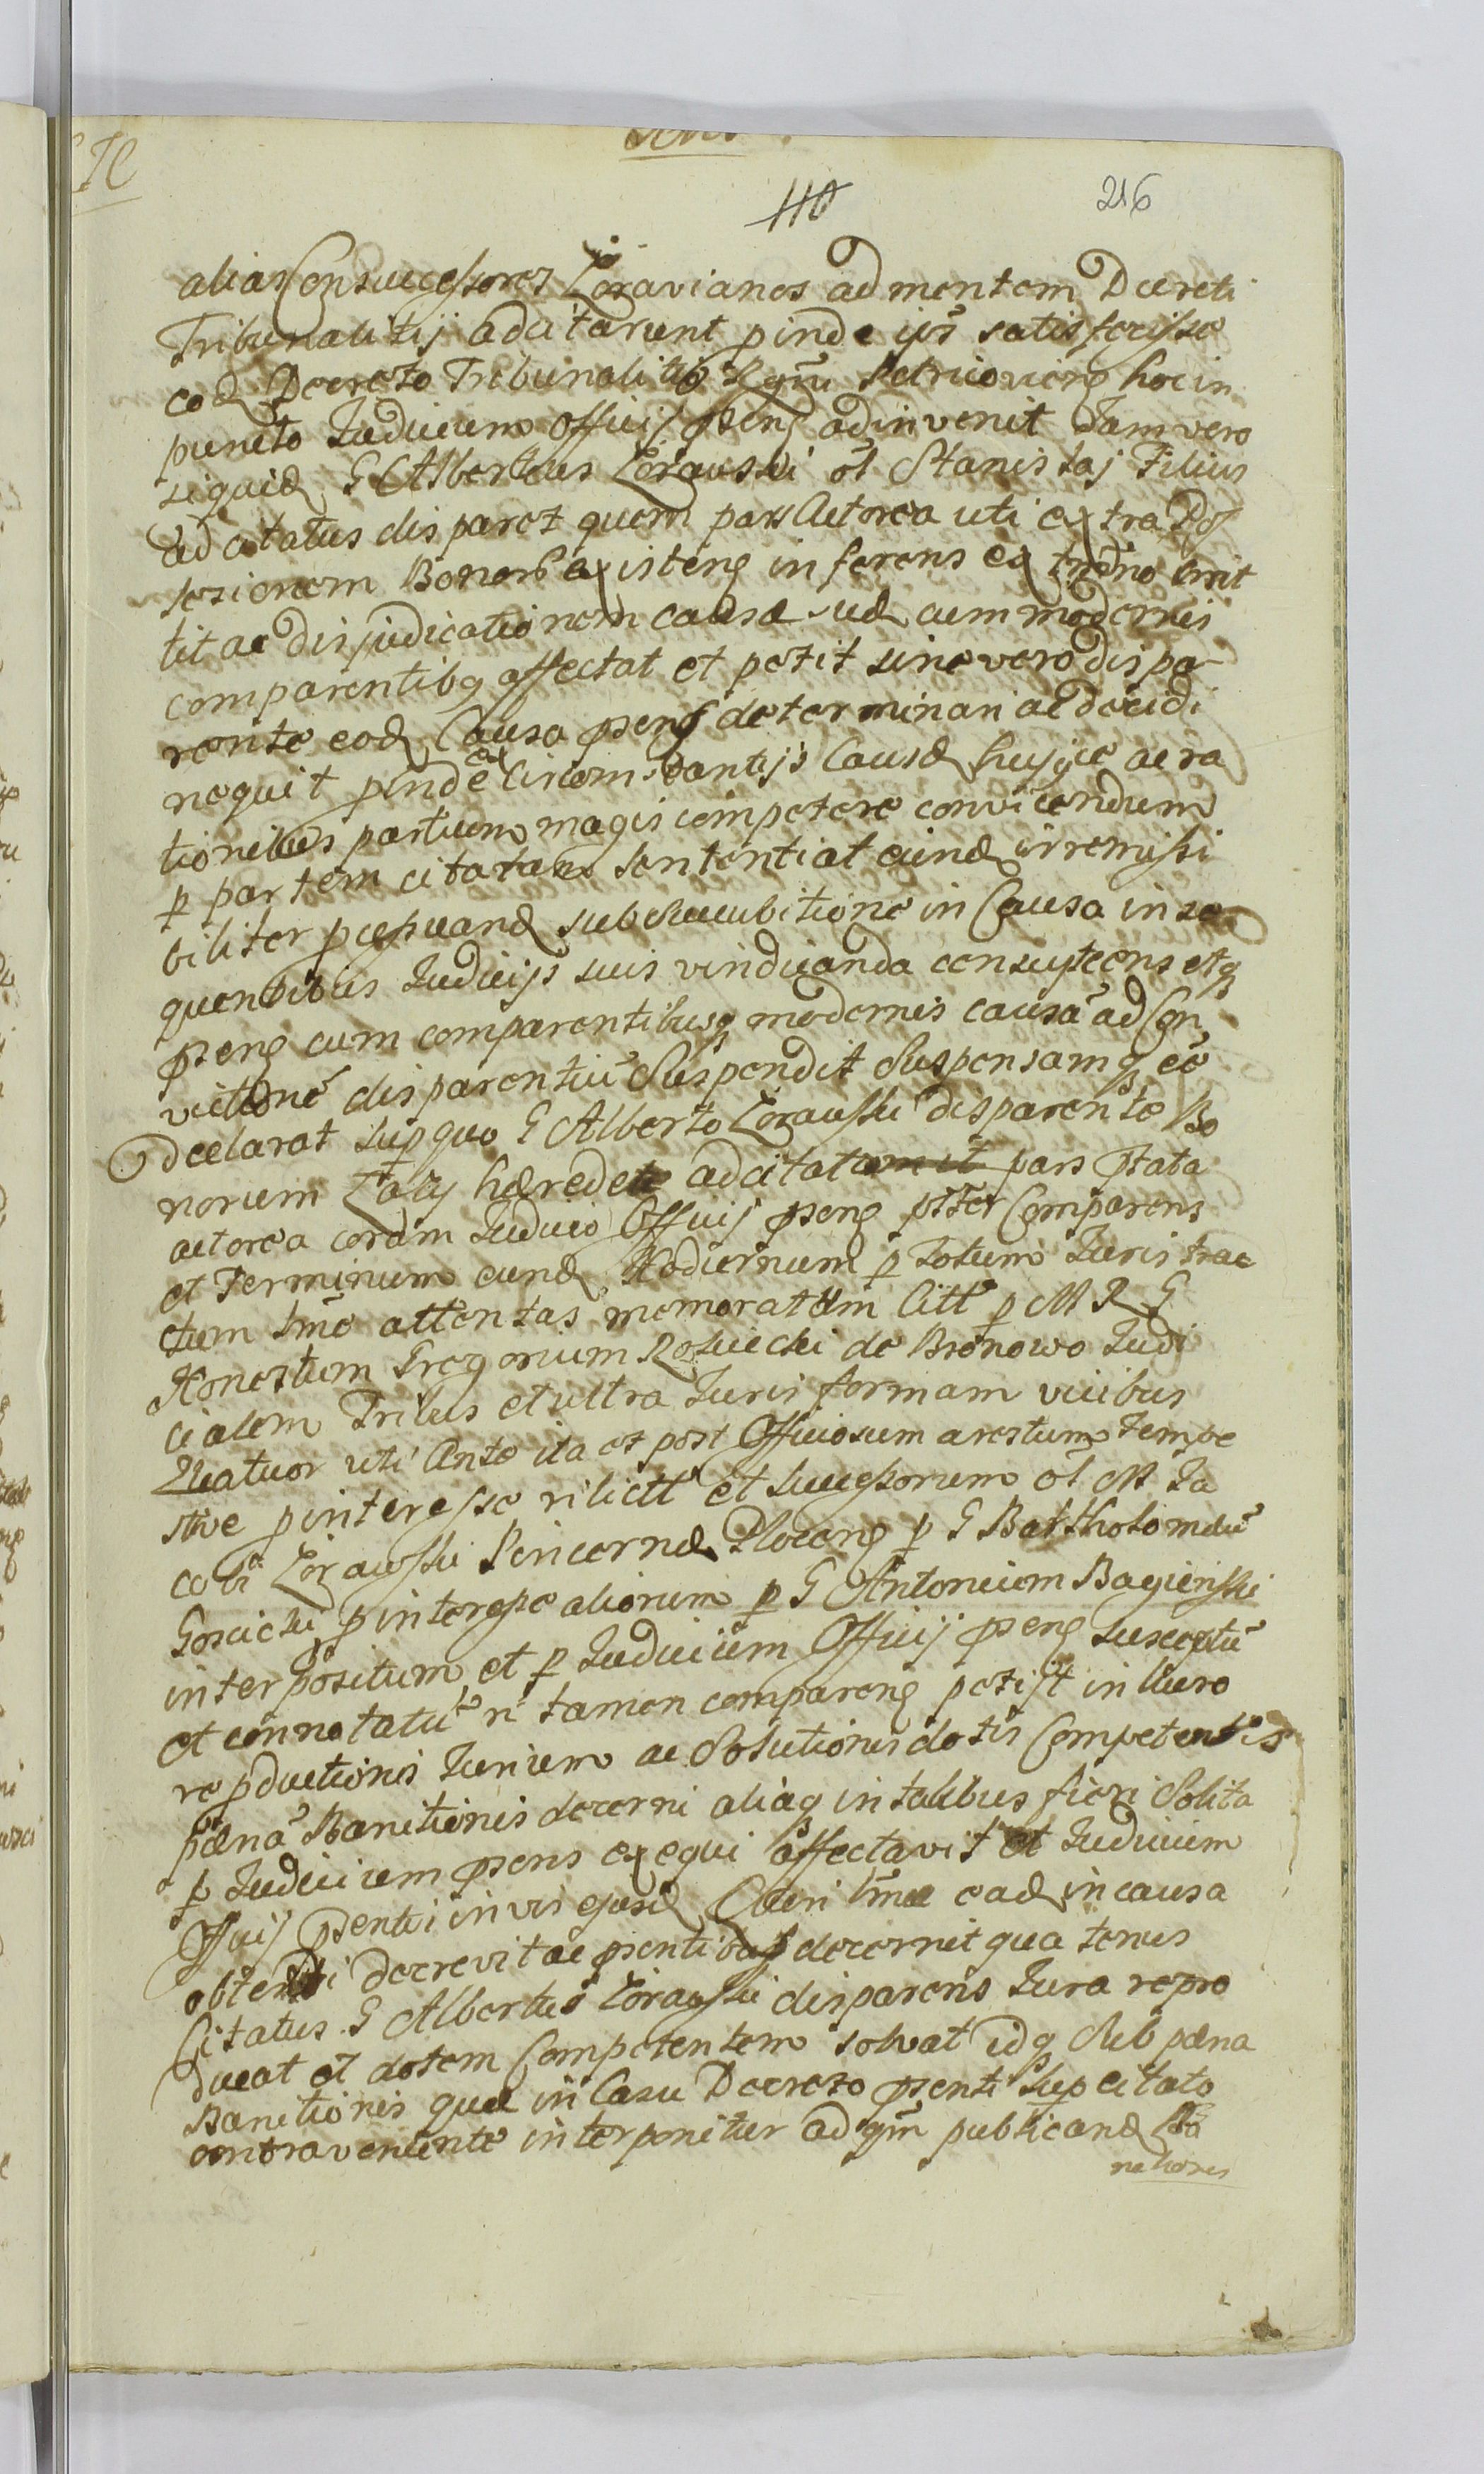 216
110
alias Consuccessores Zoravianos ad mentem Decreti
Tribunalitij adcitarunt pinde ijs satisfecisse
eod Decreto Tribunalitio Regni Petricovien hocin
puncto Judicium Officij psens adinvenit Jam vero
siquid G Albertus Zorawski ol Stanislaj Filius
adcitatus disparet quem pars Actorea uti extra Pos
sesionem Bonorum existens inferens ex termino
tit ac disjudicationem causæ sed cum modernis
comparentibq affectat et petit sine vero dispa
rente eod Causa psens determinari ac decidi
nequit pinde ex Circumstantijs Causæ hujus ac ra
tionibus partium magis competere convicendum
p partem citatam sententiat eund irremissi
biliter subsuccubitione in Causa in se
quentibus Judicijs suis vindicanda Atq
psens cum comparentibusq modernis causā ad Con
victionē disparentiū Suspendit Suspensamq eē
declarat supquo G Alberto Zorawski disparente Bo
norum Łazy hærede adcitato pars pstata
actorea coram Judicio Officij psens pstter Comparens
et Terminum eund Hodiernum p totum Juris trac
tum tmē attentas memoratum Citt p M R G
Honestum Gregorium de Bronowo Judi
cialem Tribus et ultra Juris formam vicibus
Quatuor uti Ante ita et post Officiosum arestum tempe
stive pinteresse relictt et Successorum ol M Ja
cobi Zorawski Pincernæ Plocens p G Bartholomæū
Goscicki pinteresse aliorum p G Antonium Bagienski
interpositum et p Judicium Officij psens susceptū
et connotatū n tamen comparens petijt in lucro
repductionis Jurium ac Solutionis dotis Competentis
pænā Banitionis decerni aliaq in talibus fieri Solita
p Judicium psens exequi affectavit et Judicium
Officij psenti in vis ejusd eadem in causa
obtenti decrevit ac psentibus decernit qua tenus
Citatus G Albertus Zorawski disparens Jura repro
ducat et dotem Competentem solvat idq Sub pæna
Banitionis quæ in Casu Decreto psenti Supcitato
contraveniente interponitur ad qm publicand Ba
nitionis